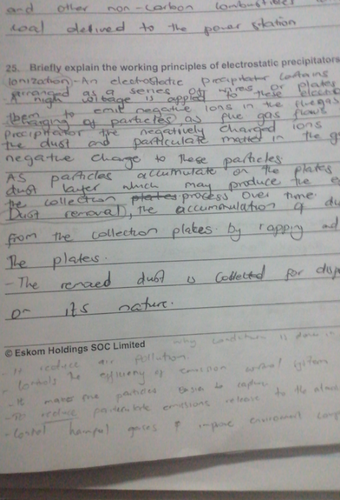 and other non-carbon combustibles
coal delivered to the power station
25. Briefly explain the working principles of electrostatic precipitators
Ionization)-An electrostatic precipitator contains
arranged as a series of wires or plates
A high voltage is applied to these
them to emit negative ions in the fluegas
charging of particles as flue gas flows
precipitator the negatively charged ions
the dust and particulate matter in the
negative charge to these particles
As particles accumulate on the plates
dust layer which may produce the
the collection plates process over time.
Dust removal), the accumulation of
from the collection plates by rapping
The plates.
-The removed dust is collected for
on its nature.
© Eskom Holdings SOC Limited
why condition is
to reduce air pollution.
- Controls the efficiency of emission control system
- It makes fine particles easier to capture
reduce particulate emissions release to the
- Control harmful gases & improve environment